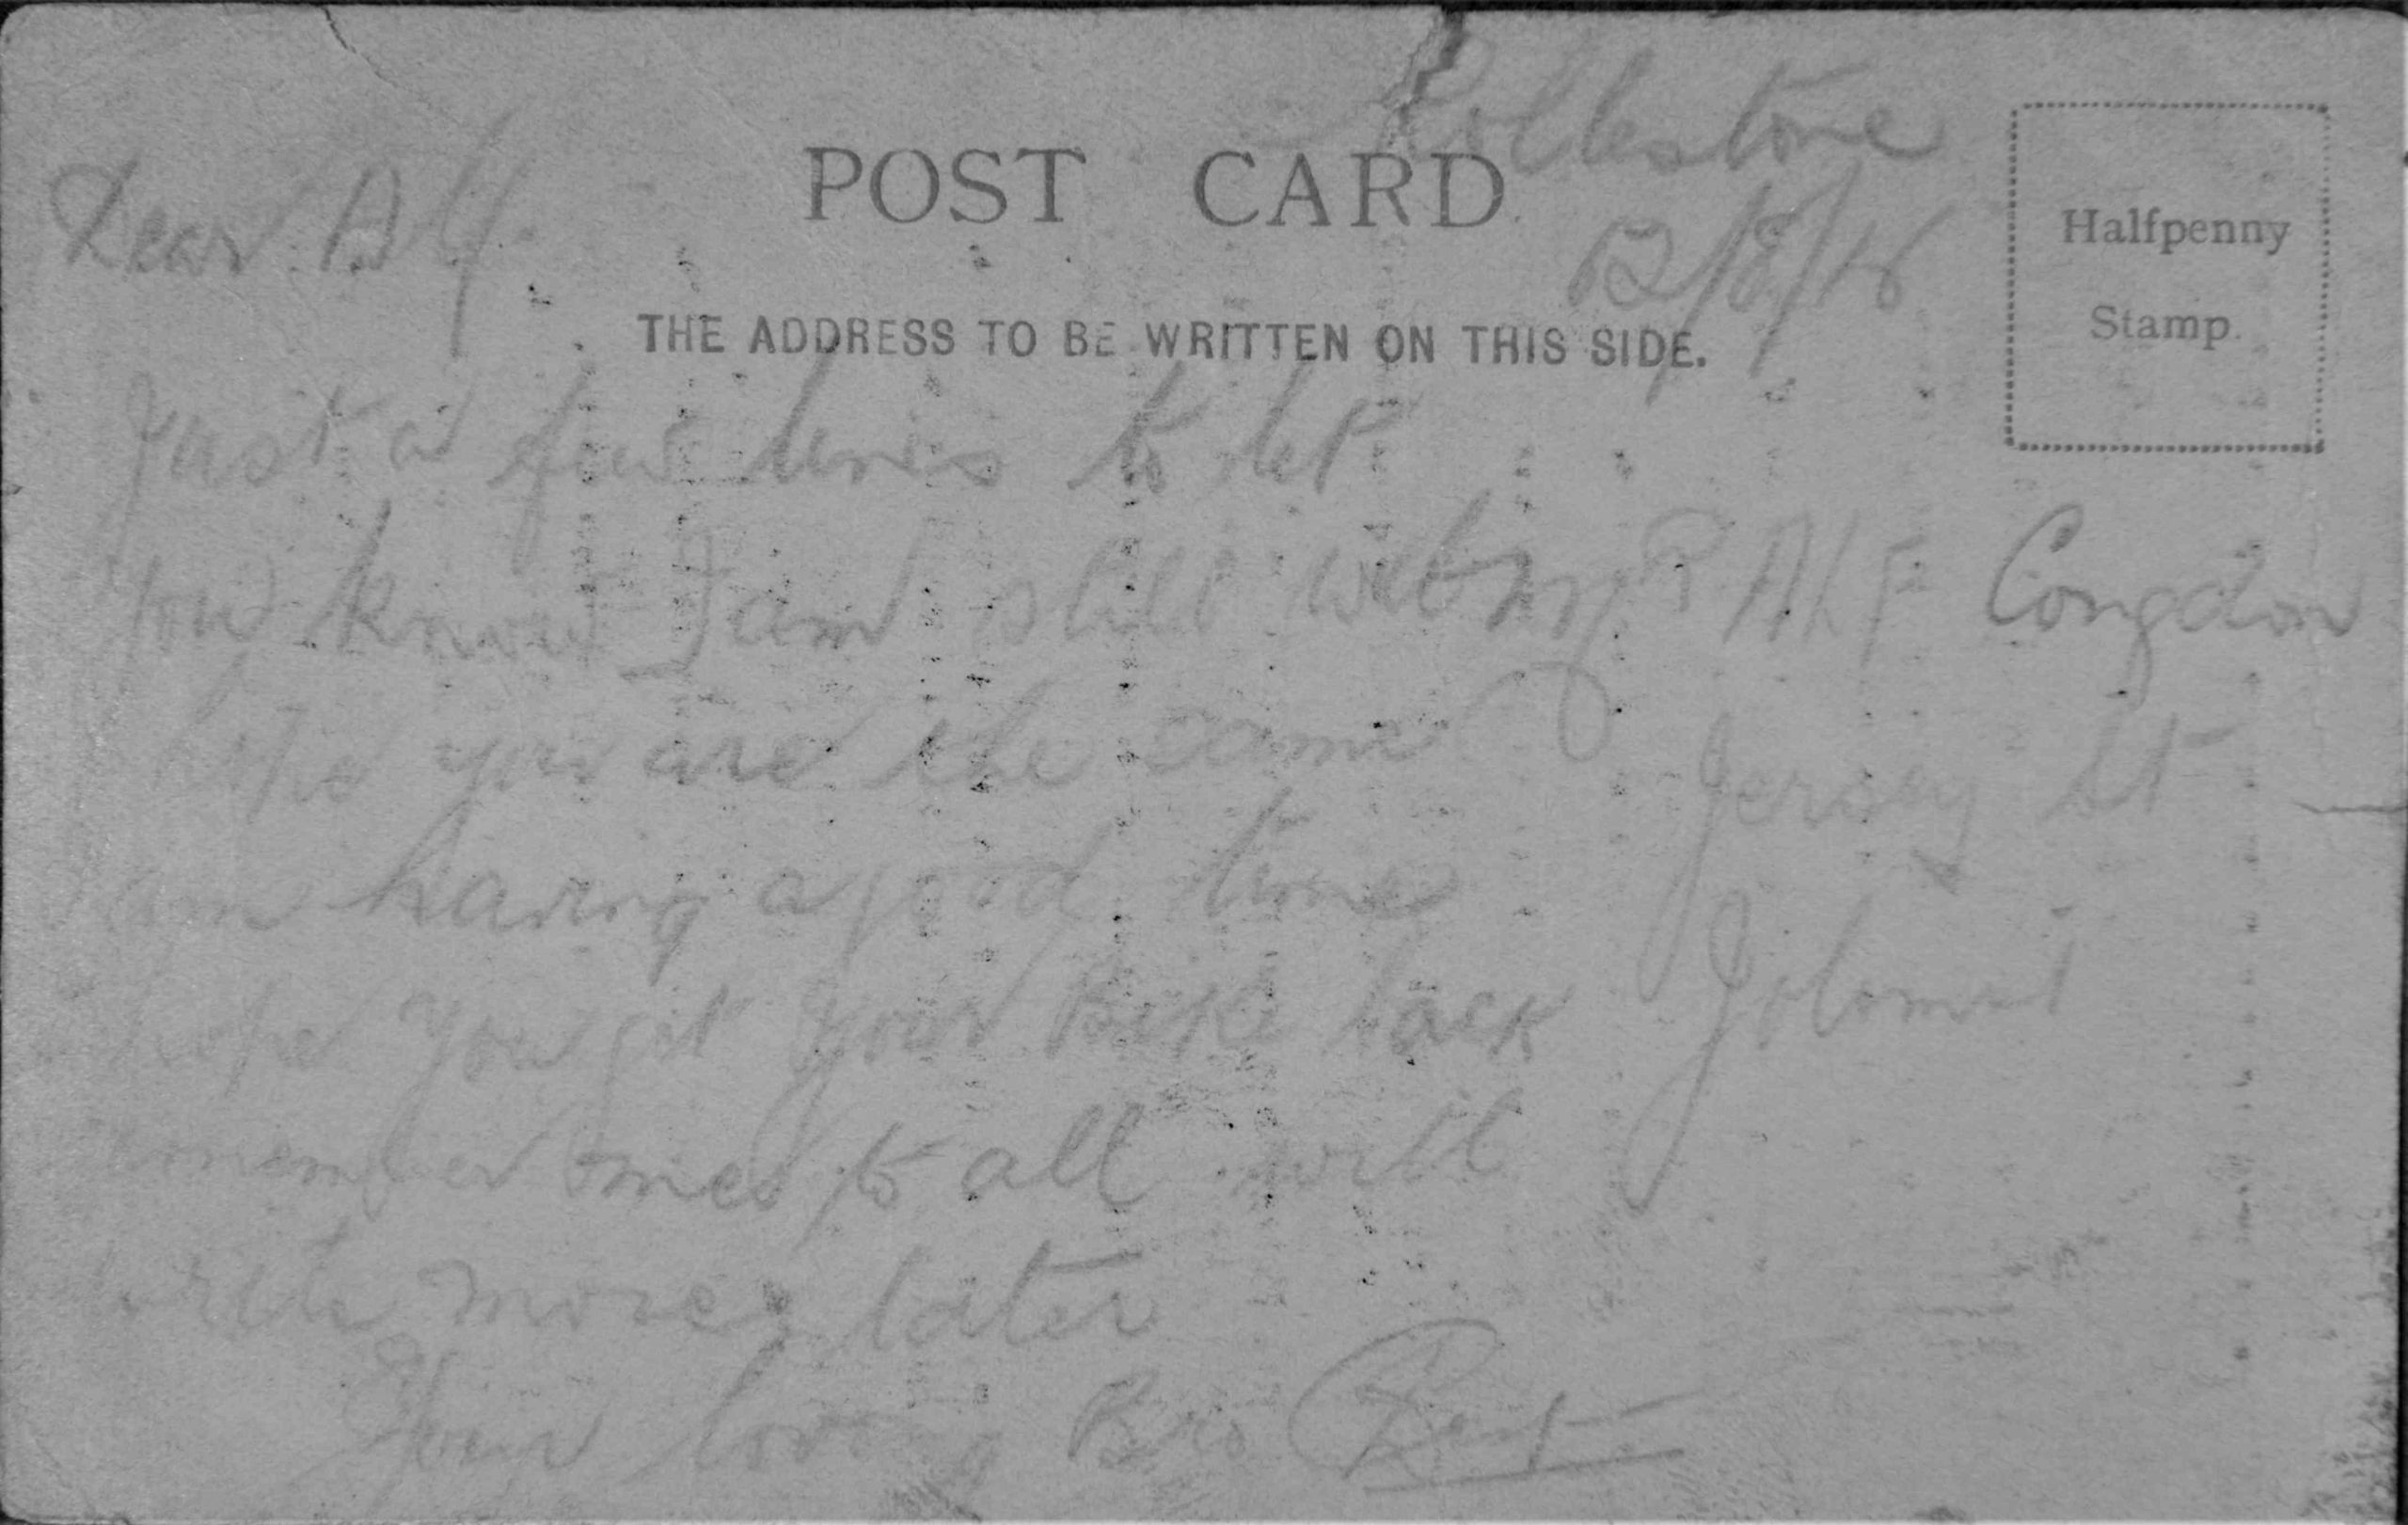 Rollestone
POST CARD
Dear Alf.
12/8/16
Halfpenny
Stamp.
THE ADDRESS TO BE WRITTEN ON THIS SIDE.
Just a few lines to let
you know I am still well
hope you are the same
I am having a good time
hope you get your Bike back
remember me to all will
write more later
Your loving Bro
Alf Congdon
Jersey St